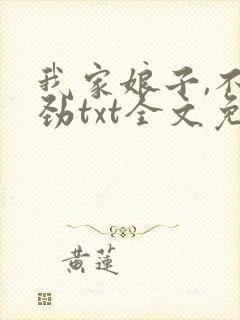 我家娘子,不
劲txt全文免
黄莲